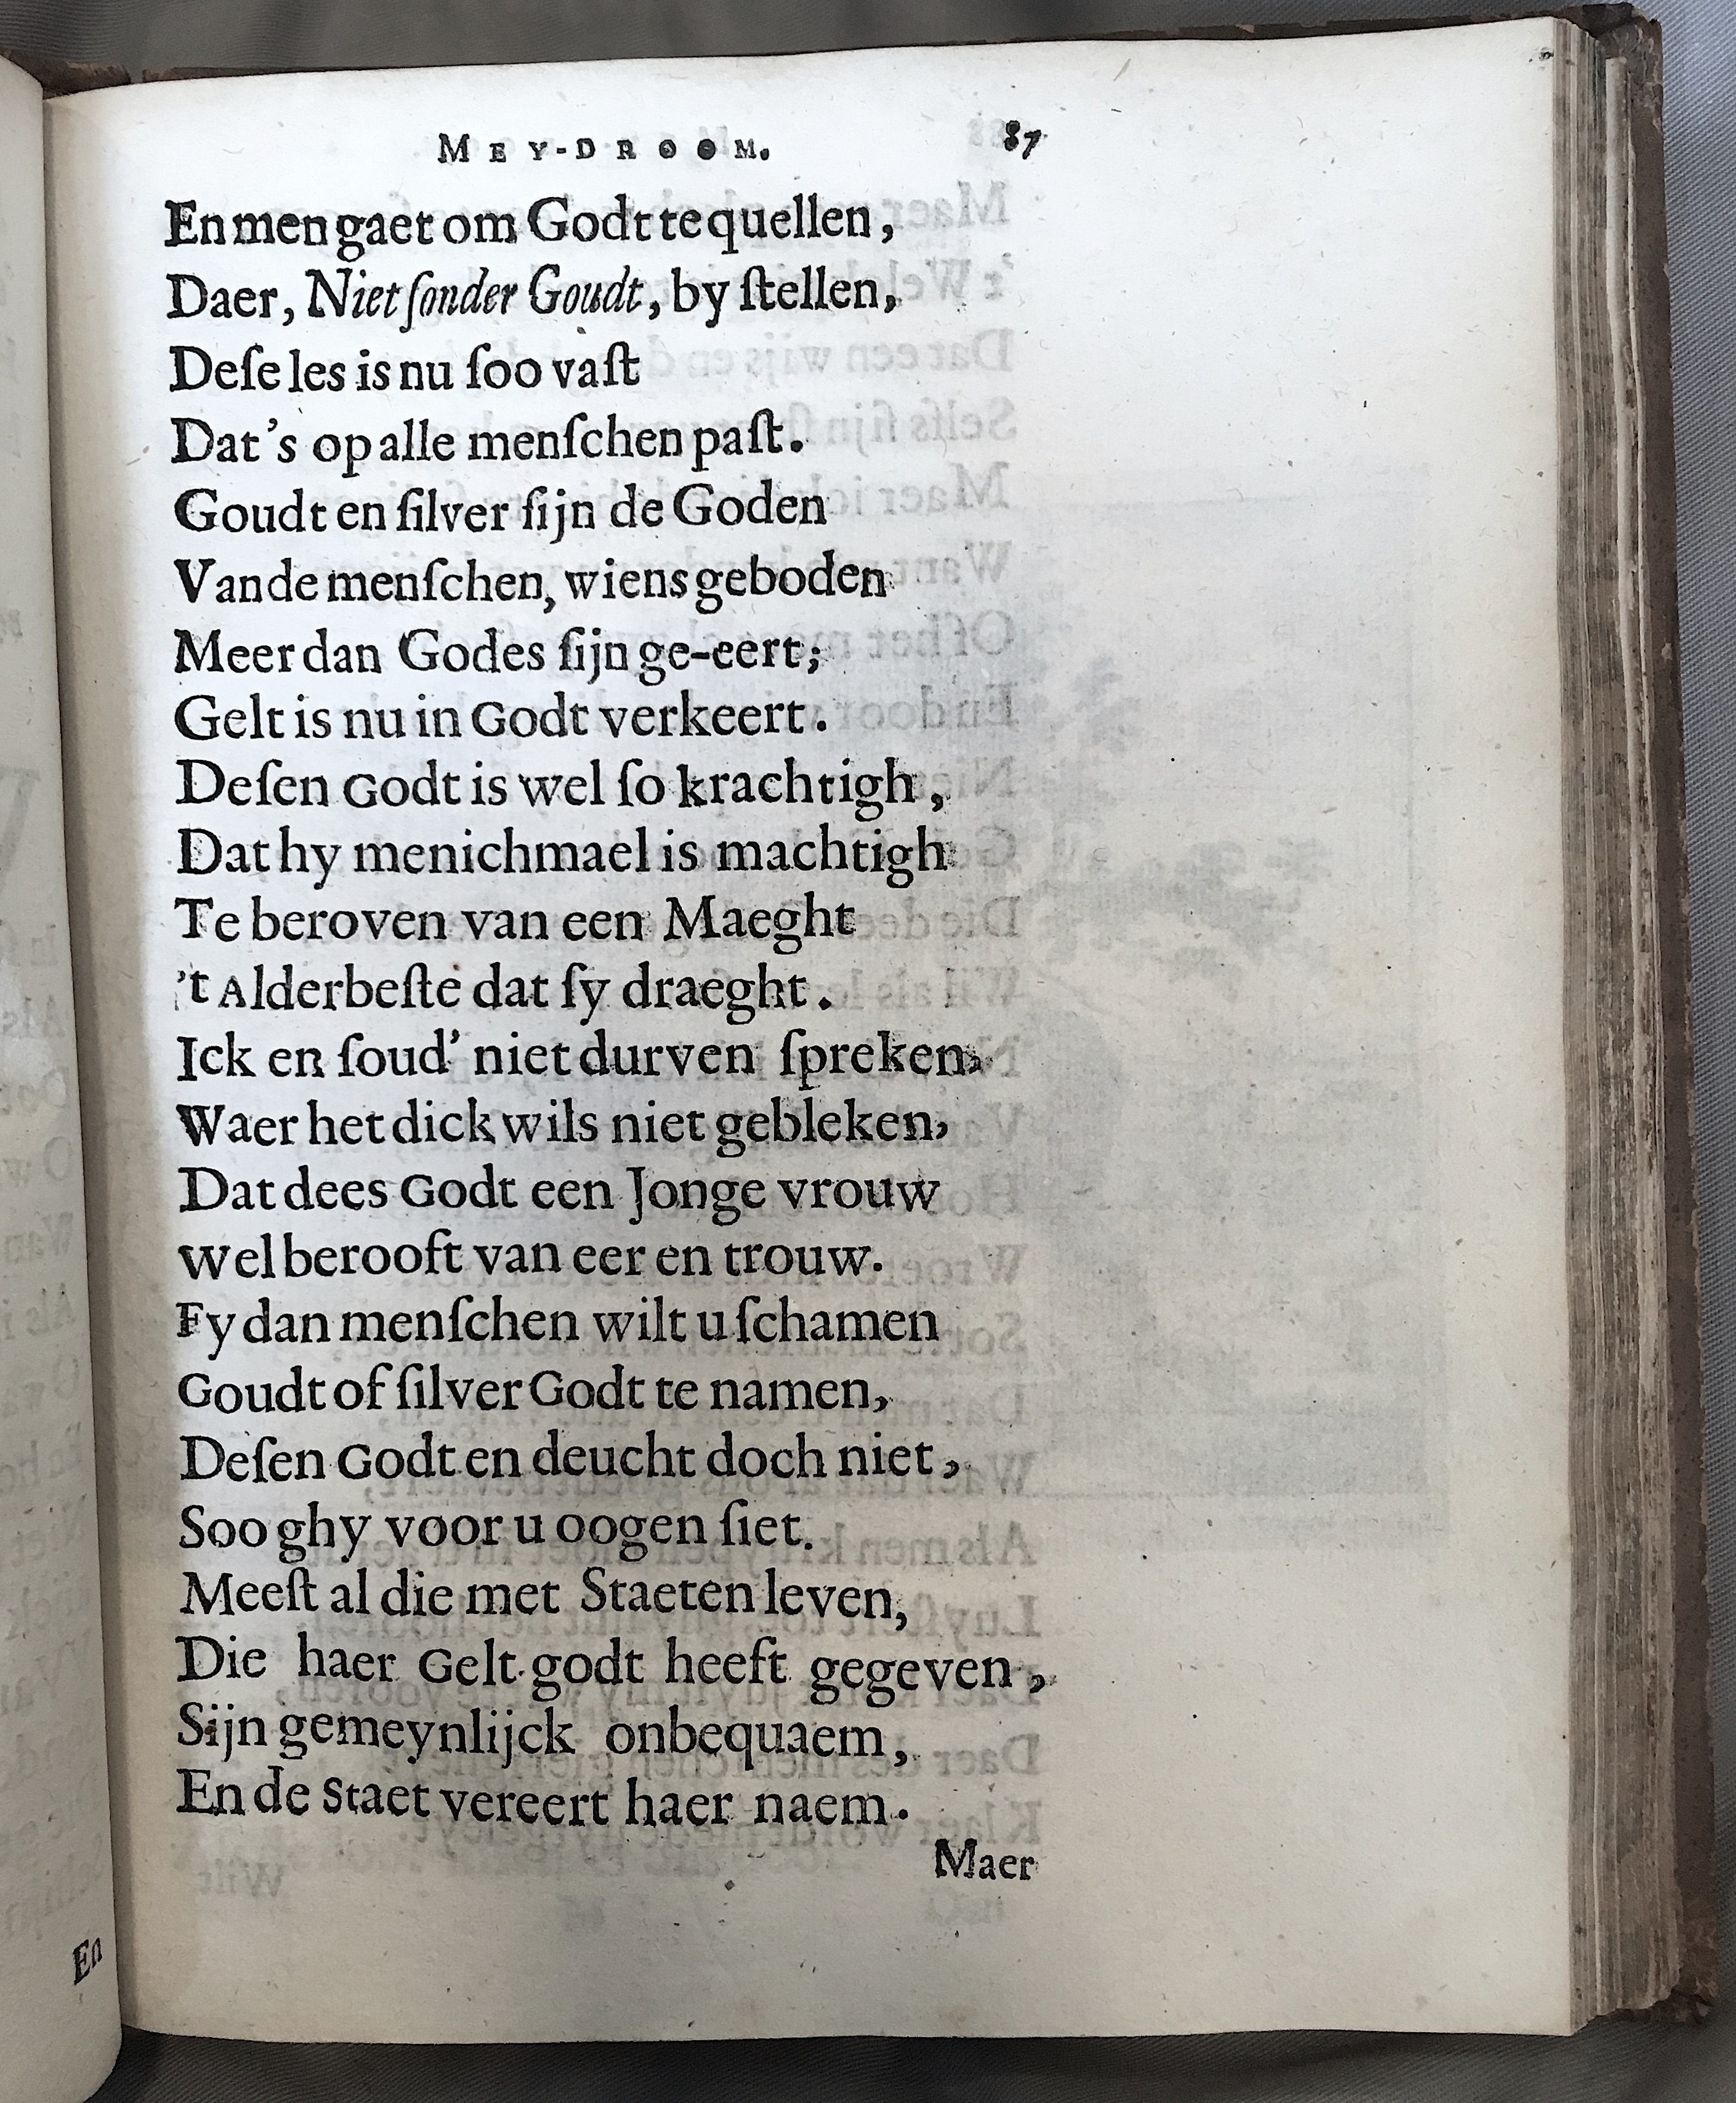 MEY-DROOM. 87
En men gaet om Godt te quellen,
Daer, Niet ſonder Goudt, by ſtellen,
Deſe les is nu ſoo vaſt
Dat's op alle menſchen paſt.
Goudt en ſilver ſijn de Goden
Vande menſchen, wiens geboden
Meer dan Godes ſijn ge-eert;
Gelt is nu in Godt verkeert.
Deſen Godt is wel ſo krachtigh,
Dat hy menichmael is machtigh
Te beroven van een Maeght
't Alderbeſte dat ſy draeght.
Ick en ſoud' niet durven ſpreken,
Waer het dickwils niet gebleken,
Dat dees Godt een Jonge vrouw
Wel berooft van eer en trouw.
Fy dan menſchen wilt u ſchamen
Goudt of ſilver Godt te namen,
Deſen Godt en deucht doch niet,
Soo ghy voor u oogen ſiet.
Meeſt al die met Staeten leven,
Die haer Gelt-godt heeft gegeven,
Sijn gemeynlijck onbequaem,
En de Staet vereert haer naem.
Maer
En